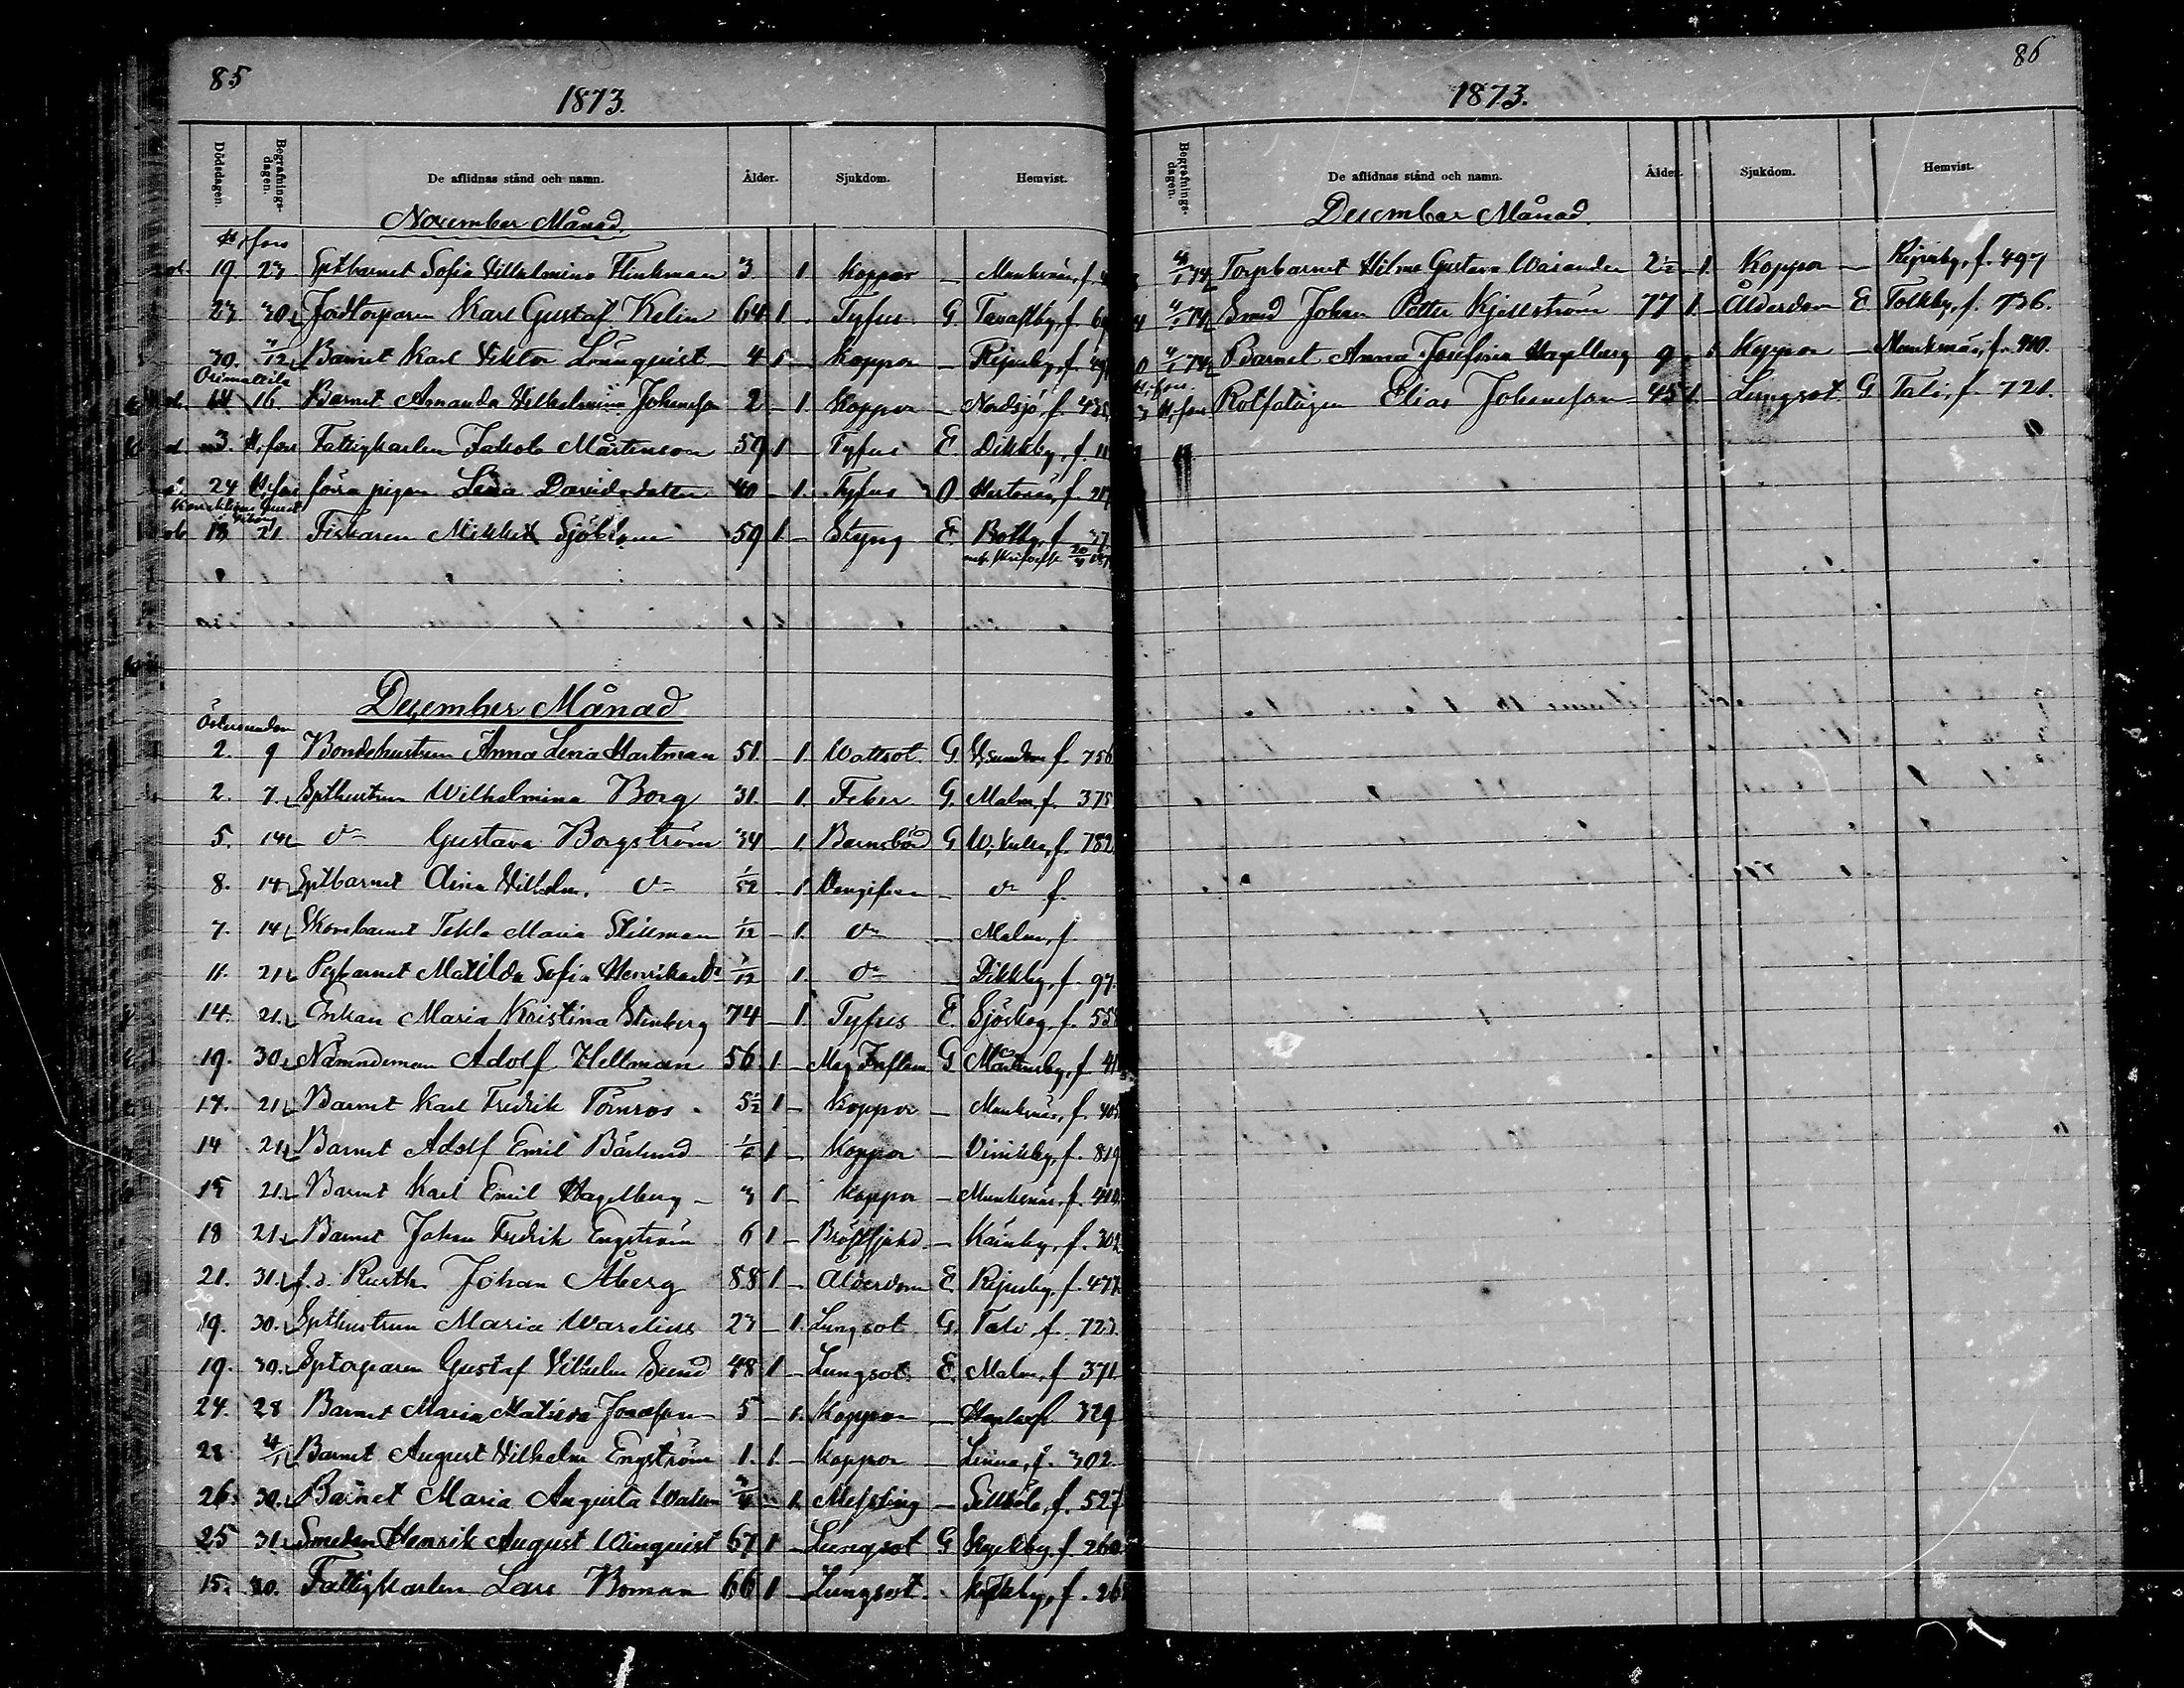 85
1873.
Dödsdagen. Begrafnings-dagen. De aflidnas stånd och namn. Ålder. Sjukdom. Hemvist.
November Månad.
H.fors
19 23 Sptbarnet Sofia Vilhelmina Flinkman 3 1 Koppor — Munksnäs, f.
23. 30 Jordtorparen Karl Gustaf Kelin 64 1 Tyfus G. Tavastby, f.
30. Barnet Karl Viktor Lönnqvist 4 1 — Koppor — Rejpeby, f.
Orimattila
14 16. Barnet Amanda Vilhelmina Johansson 2 — 1. Koppor — Nordsjö, f.
3. H.fors Fattigkarlen Jakob Mårtenson 59 1 — Tyfus E. Dikkby, f.
24 H.fors förra pigan Lena Davidsdotter 40 — 1. Tyfus O Hertonäs, f.
18 21. Fiskaren Mikkel Sjöblom 59 1 — Styng E. Botby, f.
December Månad
Östersundom
2. 9 Bondehustrun Anna Lena Hartman 51. — 1. Wattsot. G. Ö,sundom f. 756
2. 7. Spthustrun Wilhelmina Borg 31. — 1. Feber G. Malm, f. 375
5. 14 d:o Gustava Borgström 34 — 1. Barnsbörd G W. kulla, f. 782
8. 14 Sptbarnet Aina Vilhelm. d:o 1/52 — 1. Okengifven — d:o f.
7. 14 Skombarnet Tekla Maria Stillman 1/12 — 1. d:o — Malm, f.
11. 21 Pigbarnet Matilda Sofia Henriksd:r 1/12 1. d:o — Dikkby, f. 97.
14. 21. Enkan Maria Kristina Stenberg 74 — 1. Tyfus E. Sjöskog, f. 55
19. 30. Nämndeman Adolf Hellman 56. 1 — Mag Inflam G Mårtensby, f. 41
17. 21 Barnet Karl Fredrik Törnros 5 1/2 1 — Koppor — Munksnäs, f. 405
14 21 Barnet Adolf Emil Bärlund 1/6 1 — Koppor — Vinikby, f. 819
15 21. Barnet Karl Emil Hagelberg — 3 1 — Koppor — Munksnäs, f.
18 21. Barnet Johan Fredrik Engström 6 1 — Bröstsjukd. — Kårnby, f. 302
21. 31. f.d. Rusth. Johan Åberg 88 1 — Ålderdom E. Rejpeby, f. 477.
19. 30. Spthustrun Maria Warelius 23 — 1. Lungsot G. Tali, f. 723.
19. 30. Sptorparen Gustaf Vilhelm Sund 48 1 — Lungsot. E. Malm, f. 371.
24. 28 Barnet Maria Matilda Josefson 5 — 1. Koppor — f. 329
28 4/1 Barnet August Vilhelm Engström 1. 1. — Koppor — f. 302.
26. 30. Barnet Maria Augusta — 1. Messling — Sellböle, f. 527
25 31. Smeden Henrik August Winqvist 67 1 — Lungsot G f. 260.
15. 20. Fattigkarlen Lars Boman 66 1 — Lungsot. f. 26
86
1873.
Begrafnings-dagen. De aflidnas stånd och namn. Ålder. Sjukdom. Hemvist.
December Månad.
4/1 74 Torpbarnet Hilma Gustava Wasander 2 1/2 — 1. Koppor — Rejpeby, f. 497
4/1 74 Smed Johan Petter Kjellström 77 1. — Ålderdom E. Tolkby, f. 736.
4/1 74 Barnet Anna Josefina Hagelberg 9 — 1. Koppor — Munksnäs, f.
H.fors
H,fors Rotfatigen Elias Johansson 45 1. — Lungsot G Tali, f. 721.